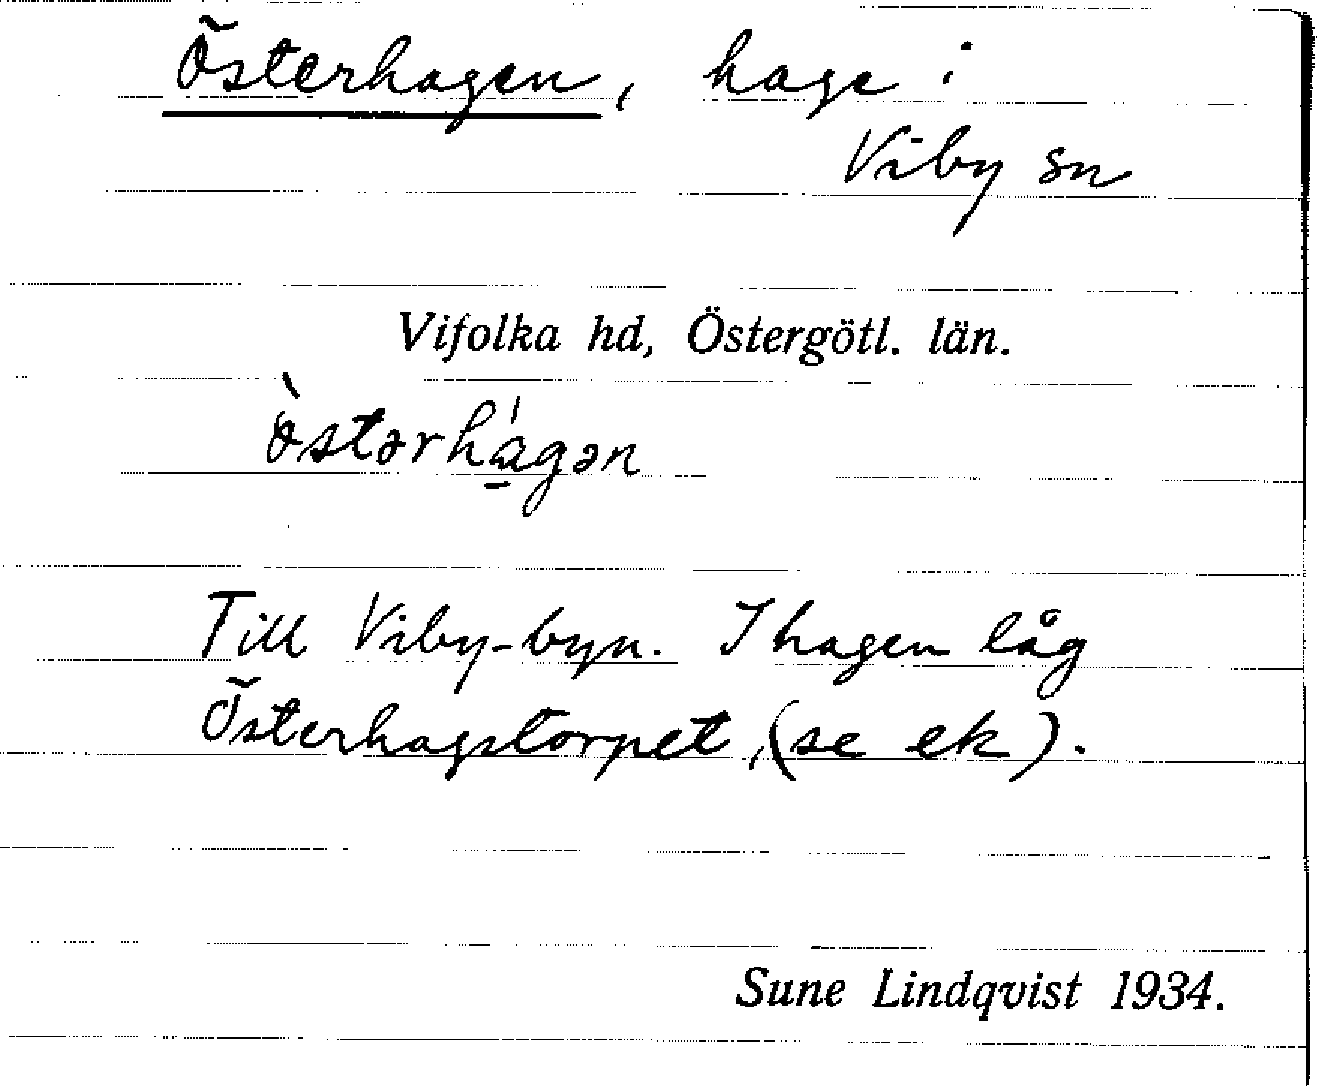 Österhagen, hage i
Viby sn
Vifolka hd, Östergötl. län.
ò̈stərhá̱gən
Till Viby-byn. I hagen låg
Österhagstorpet, (se ek).
Sune Lindqvist 1934.